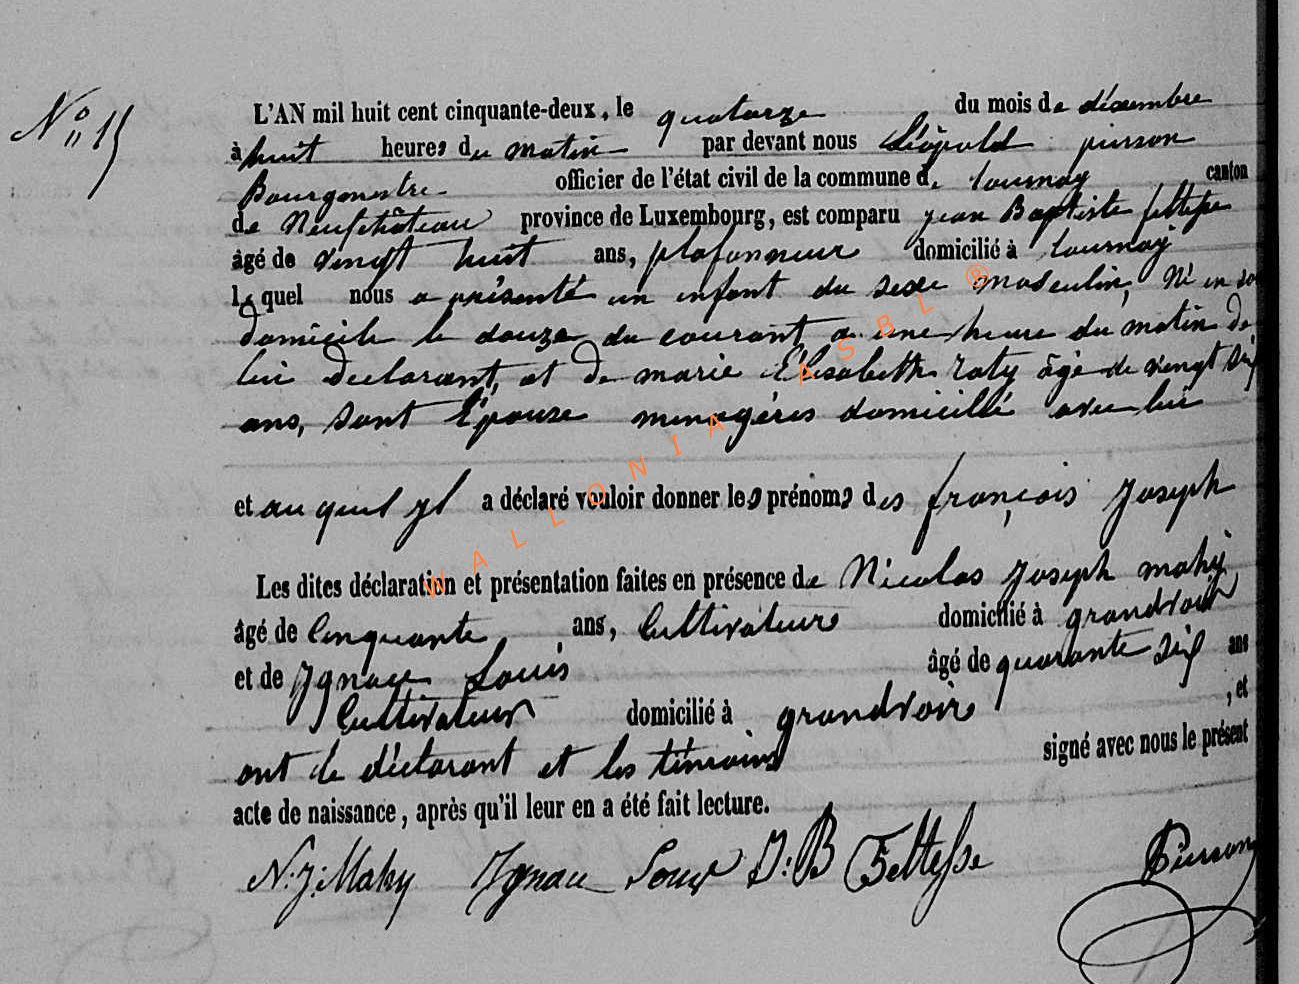 N° 15
L'AN mil huit cent cinquante-deux, le quatorze du mois de décembre
à huit heures du matin par devant nous Léopold pirson
Bourgmestre officier de l'état civil de la commune de tournay canton
de Neufchâteau province de Luxembourg, est comparu jean Baptiste feltesse
âgé de vingt huit ans, plafonneur domicilié à tournay
lequel nous a présenté un infant du sexe masculin, Né en son
domicile le douze du courant a une heure du matin de
lui déclarant, et de marie Elisabeth raty âgé de vingt six
ans, sont Épouse menagères domicillié avec lui
et auquel yl a déclaré vouloir donner les prénoms des françois Joseph
Les dites déclaration et présentation faites en présence de Nicolas Joseph mahy
âgé de Cinquante ans, Cultivateure domicilié à grandvoir
et de Ignace Louis âgé de quarante six ans
Cultivateur domicilié à grandvoire , et
ont le déclarant et les témoins signé avec nous le présent
acte de naissance, après qu'il leur en a été fait lecture.
N: J: Mahy Ignace Louis J: B Feltesse Pirson
WALLONIA ASBL ®